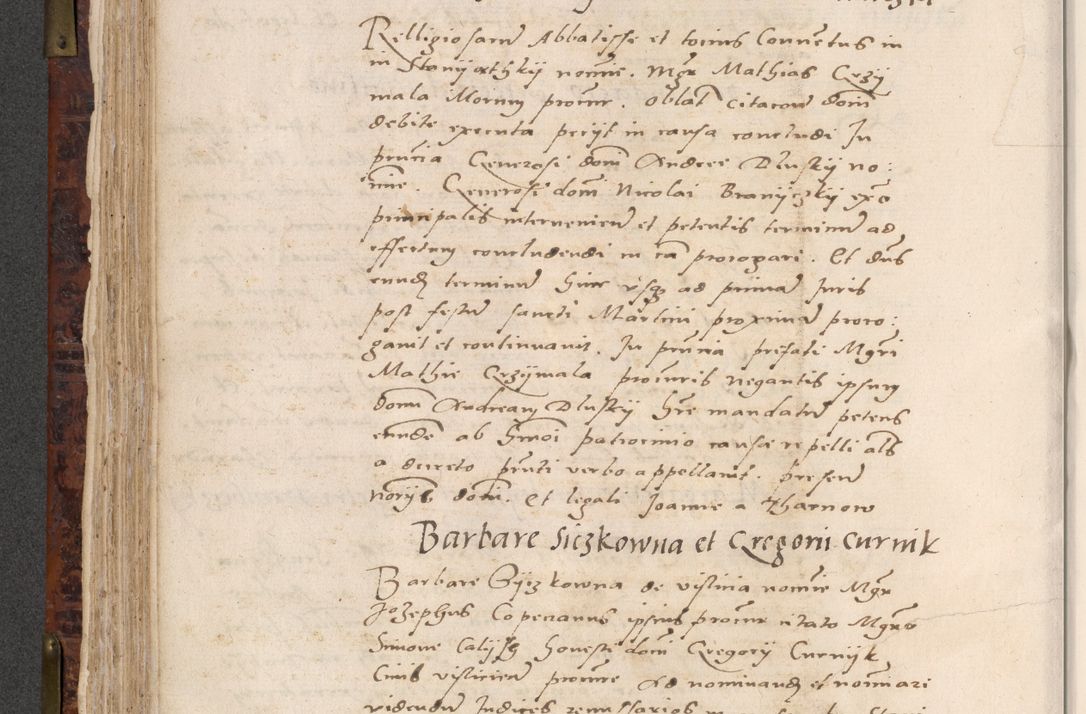 Relligiosarum Abbatisse et totius Conventus in
in Staniiathkii nomine. Mgr Mathias Crzÿ
mala Morum procur. oblat citacion domini
debite executa petiit in causa concludi In
pruncia Generosi domini Andree Dluskÿ no:
mine. Generosi domini Nicolai Braniiczkÿ exo
principalis intervenien et petentis terminum ad
effectum concludendi in ca prorogari. Et dus
eundem terminum hinc usq ad primam Iuris
post festum sancti Martini proximam proro:
gavit et continuavit. In prucia prefati Mgri
Mathie Crzÿmala procuris negantis ipsum
domin Andream Dluskÿ hre mandatum petens
eunde ab hmoi patrocinio cause repelli als
a decreto pruti verbo appellavit. Presen
norÿs domin. Et legali Joanne a Tharnow
Barbare Siczkowna et Gregorii Curnik
Barbare Siiczkowna de vislicia nomine Mgr
Jozephus Copenanus ipsius procur citato Mgro
Simone Calÿsz honesti domini Gregorÿ Curnÿk
Civis vislicien procure Ad nominand et nominari
videndum Iudices remissarios